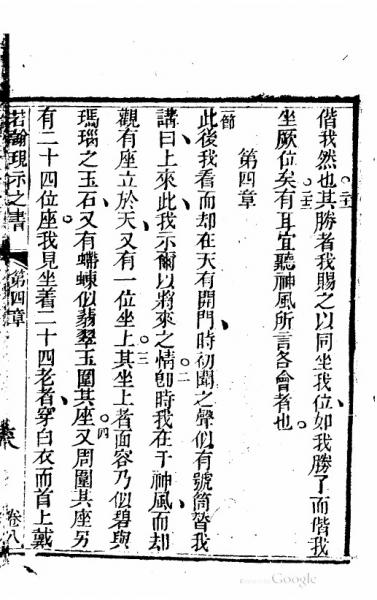 偕我然也其勝者我賜之以同坐我位如我勝了而偕我
二十一
坐厥位矣有耳宜聽神風所言各會者也
二十二
第四章
一節
此後我看而却在天有開門時初聞之聲似有號筒聲我
講曰上來此我示爾以將來之情卽時我在于神風而却
二
觀有座立於天又有一位坐上其坐上者面容乃似碧與
三
瑪瑙之玉石又有螮蝀似翡翠玉圍其座又周圍其座另
四
有二十四位座我見坐着二十四老者穿白衣而首上戴
若翰現示之書
第四章
卷八
Google